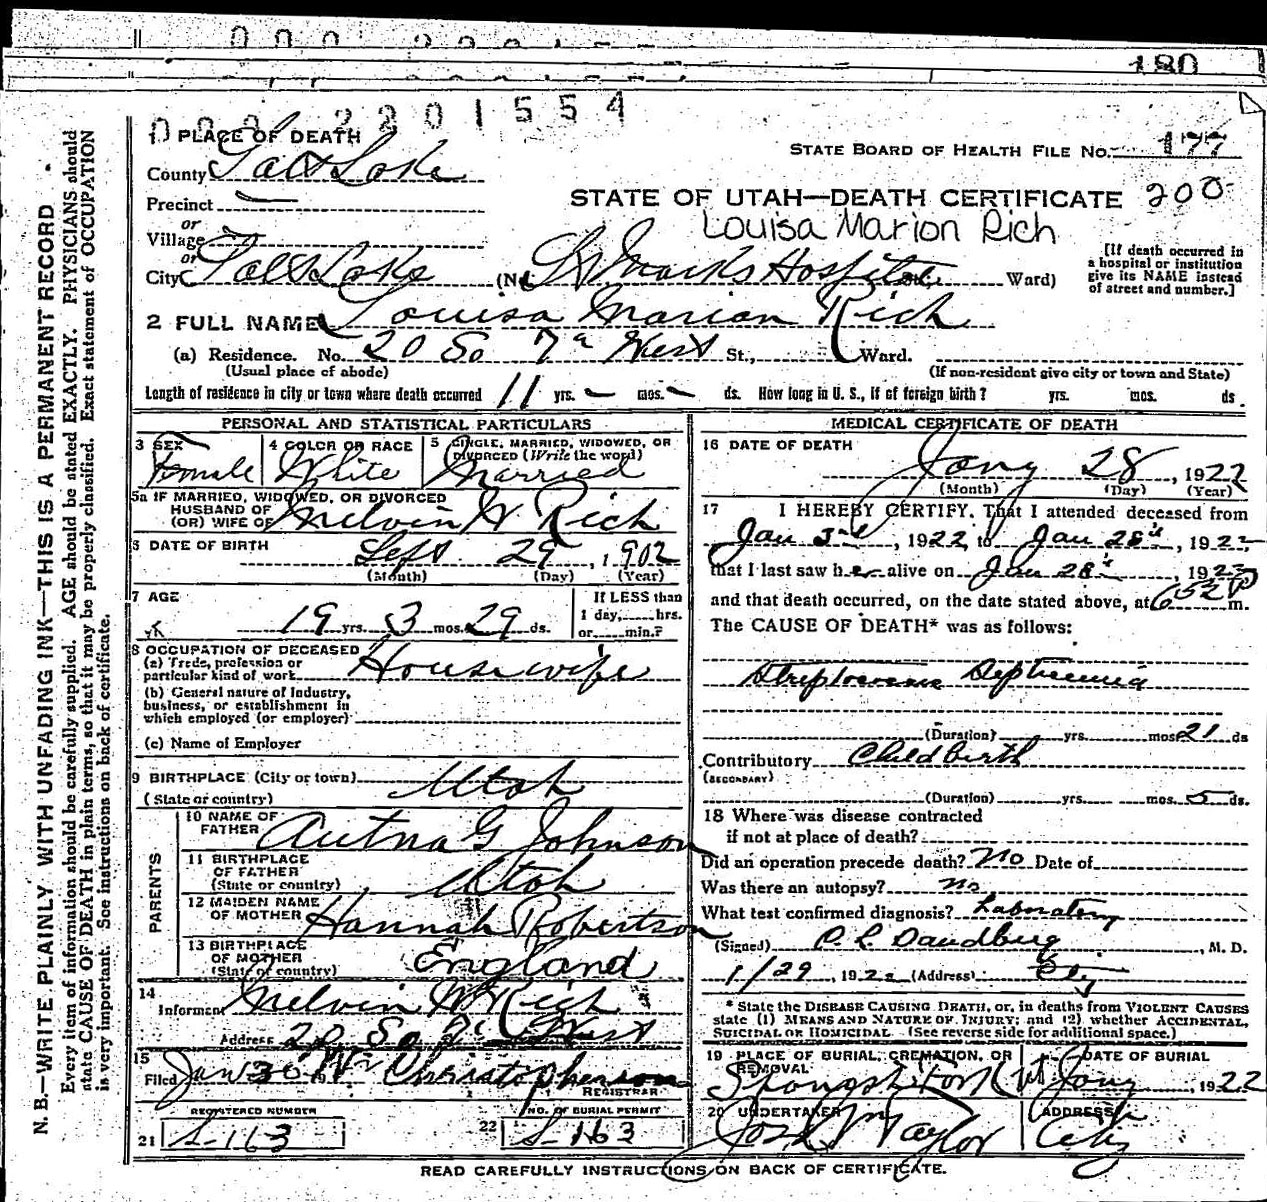 180
2201554
1 PLACE OF DEATH
STATE BOARD OF HEALTH FILE No. 177
County Salt Lake
STATE OF UTAH—DEATH CERTIFICATE 200
Precinct
Louisa Marion Rich
or
Village
or
City Salt Lake (No. St Marks Hospital St., Ward)
[If death occurred in
a hospital or institution
give its NAME instead
of street and number.]
2 FULL NAME Louisa Marian Rich
(a) Residence. No. 20 So 7th West St., Ward.
(Usual place of abode) (If non-resident give city or town and State)
Length of residence in city or town where death occurred 11 yrs. – mos. – ds. How long in U. S., if of foreign birth? yrs. mos. ds.
PERSONAL AND STATISTICAL PARTICULARS
3 SEX
Female
4 COLOR OR RACE
White
5 SINGLE, MARRIED, WIDOWED, OR
DIVORCED (Write the word)
Married
5a IF MARRIED, WIDOWED, OR DIVORCED
HUSBAND OF
(OR) WIFE OF Melvin W Rich
6 DATE OF BIRTH Sept 29, 1902
(Month) (Day) (Year)
7 AGE
19 yrs. 3 mos. 29 ds.
If LESS than
1 day, hrs.
or min.?
8 OCCUPATION OF DECEASED
(a) Trade, profession or
particular kind of work Housewife
(b) General nature of Industry,
business, or establishment in
which employed (or employer)
(c) Name of Employer
9 BIRTHPLACE (City or town) Utah
(State or country)
PARENTS
10 NAME OF
FATHER Autna G Johnson
11 BIRTHPLACE
OF FATHER
(State or country) Utah
12 MAIDEN NAME
OF MOTHER Hannah Robertson
13 BIRTHPLACE
OF MOTHER
(State or country) England
14
Informant Melvin W Rich
Address 20 So 7th West
15
Filed Jan 30 Wm Christopherson
REGISTRAR
REGISTERED NUMBER
21 S-163
NO. OF BURIAL PERMIT
22 S-163
MEDICAL CERTIFICATE OF DEATH
16 DATE OF DEATH
Jany 28, 1922
(Month) (Day) (Year)
17 I HEREBY CERTIFY, That I attended deceased from
Jan 3rd, 1922, to Jan 28th, 1922
that I last saw her alive on Jan 28th, 1922
and that death occurred, on the date stated above, at 6:52 P m.
The CAUSE OF DEATH* was as follows:
Streptococcus Septicemia
(Duration) yrs. mos. 21 ds
Contributory Childbirth
(SECONDARY)
(Duration) yrs. mos. 5 ds.
18 Where was disease contracted
if not at place of death?
Did an operation precede death? No Date of
Was there an autopsy? No
What test confirmed diagnosis? Laboratory
(Signed) , M. D.
1/29, 1922 (Address)
* State the DISEASE CAUSING DEATH, or, in deaths from VIOLENT CAUSES
state (1) MEANS AND NATURE OF INJURY; and (2) whether ACCIDENTAL,
SUICIDAL OR HOMICIDAL. (See reverse side for additional space.)
19 PLACE OF BURIAL, CREMATION, OR
REMOVAL
Spanish Fork Ut
DATE OF BURIAL
Jany, 1922
20 UNDERTAKER
Jos Wm Taylor
ADDRESS
City
READ CAREFULLY INSTRUCTIONS ON BACK OF CERTIFICATE.
N. B.—WRITE PLAINLY WITH UNFADING INK—THIS IS A PERMANENT RECORD
Every item of information should be carefully supplied. AGE should be stated EXACTLY. PHYSICIANS should
state CAUSE OF DEATH in plain terms, so that it may be properly classified. Exact statement of OCCUPATION
is very important. See instructions on back of certificate.